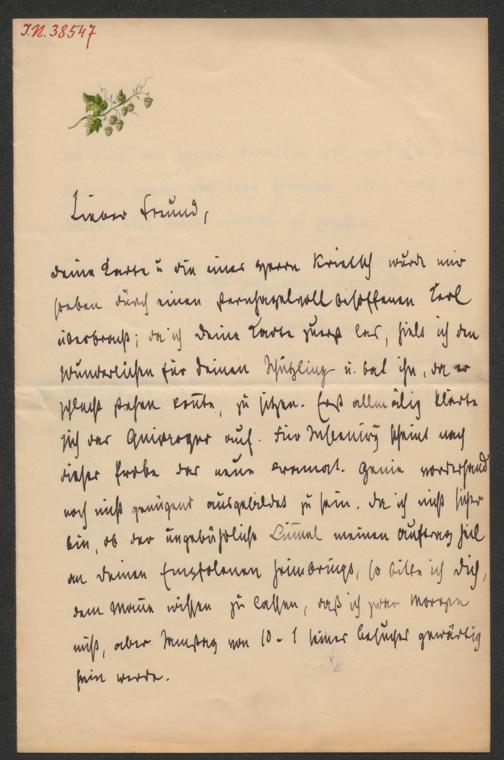 I.N. 38547
Lieber Freund,
deine Karte u die eines Herrn Krietsch wurde mir
soeben durch einen sternhagelvoll besoffenen Kerl
überbracht; da ich deine Karte zuerst las, hielt ich den
Wunderlichen für deinen Schützling u. bat ihn, da er
schlecht stehen konnte, zu sitzen. Erst allmälig klärte
sich das Quiproquo auf. Für scheint nach
dieser Probe das neue dramat. Genie vorderhand
noch nicht genügend ausgebildet zu sein. Da ich nicht sicher
bin, ob der ungebührliche Lümmel meinen Auftrag heil
an deinen Empfolenen heimbringt, so bitte ich dich,
dem Manne wissen zu lassen, daß ich zwar morgen
nicht, aber Samstag von 10 - 1 seines Besuches gewärtig
sein werde.